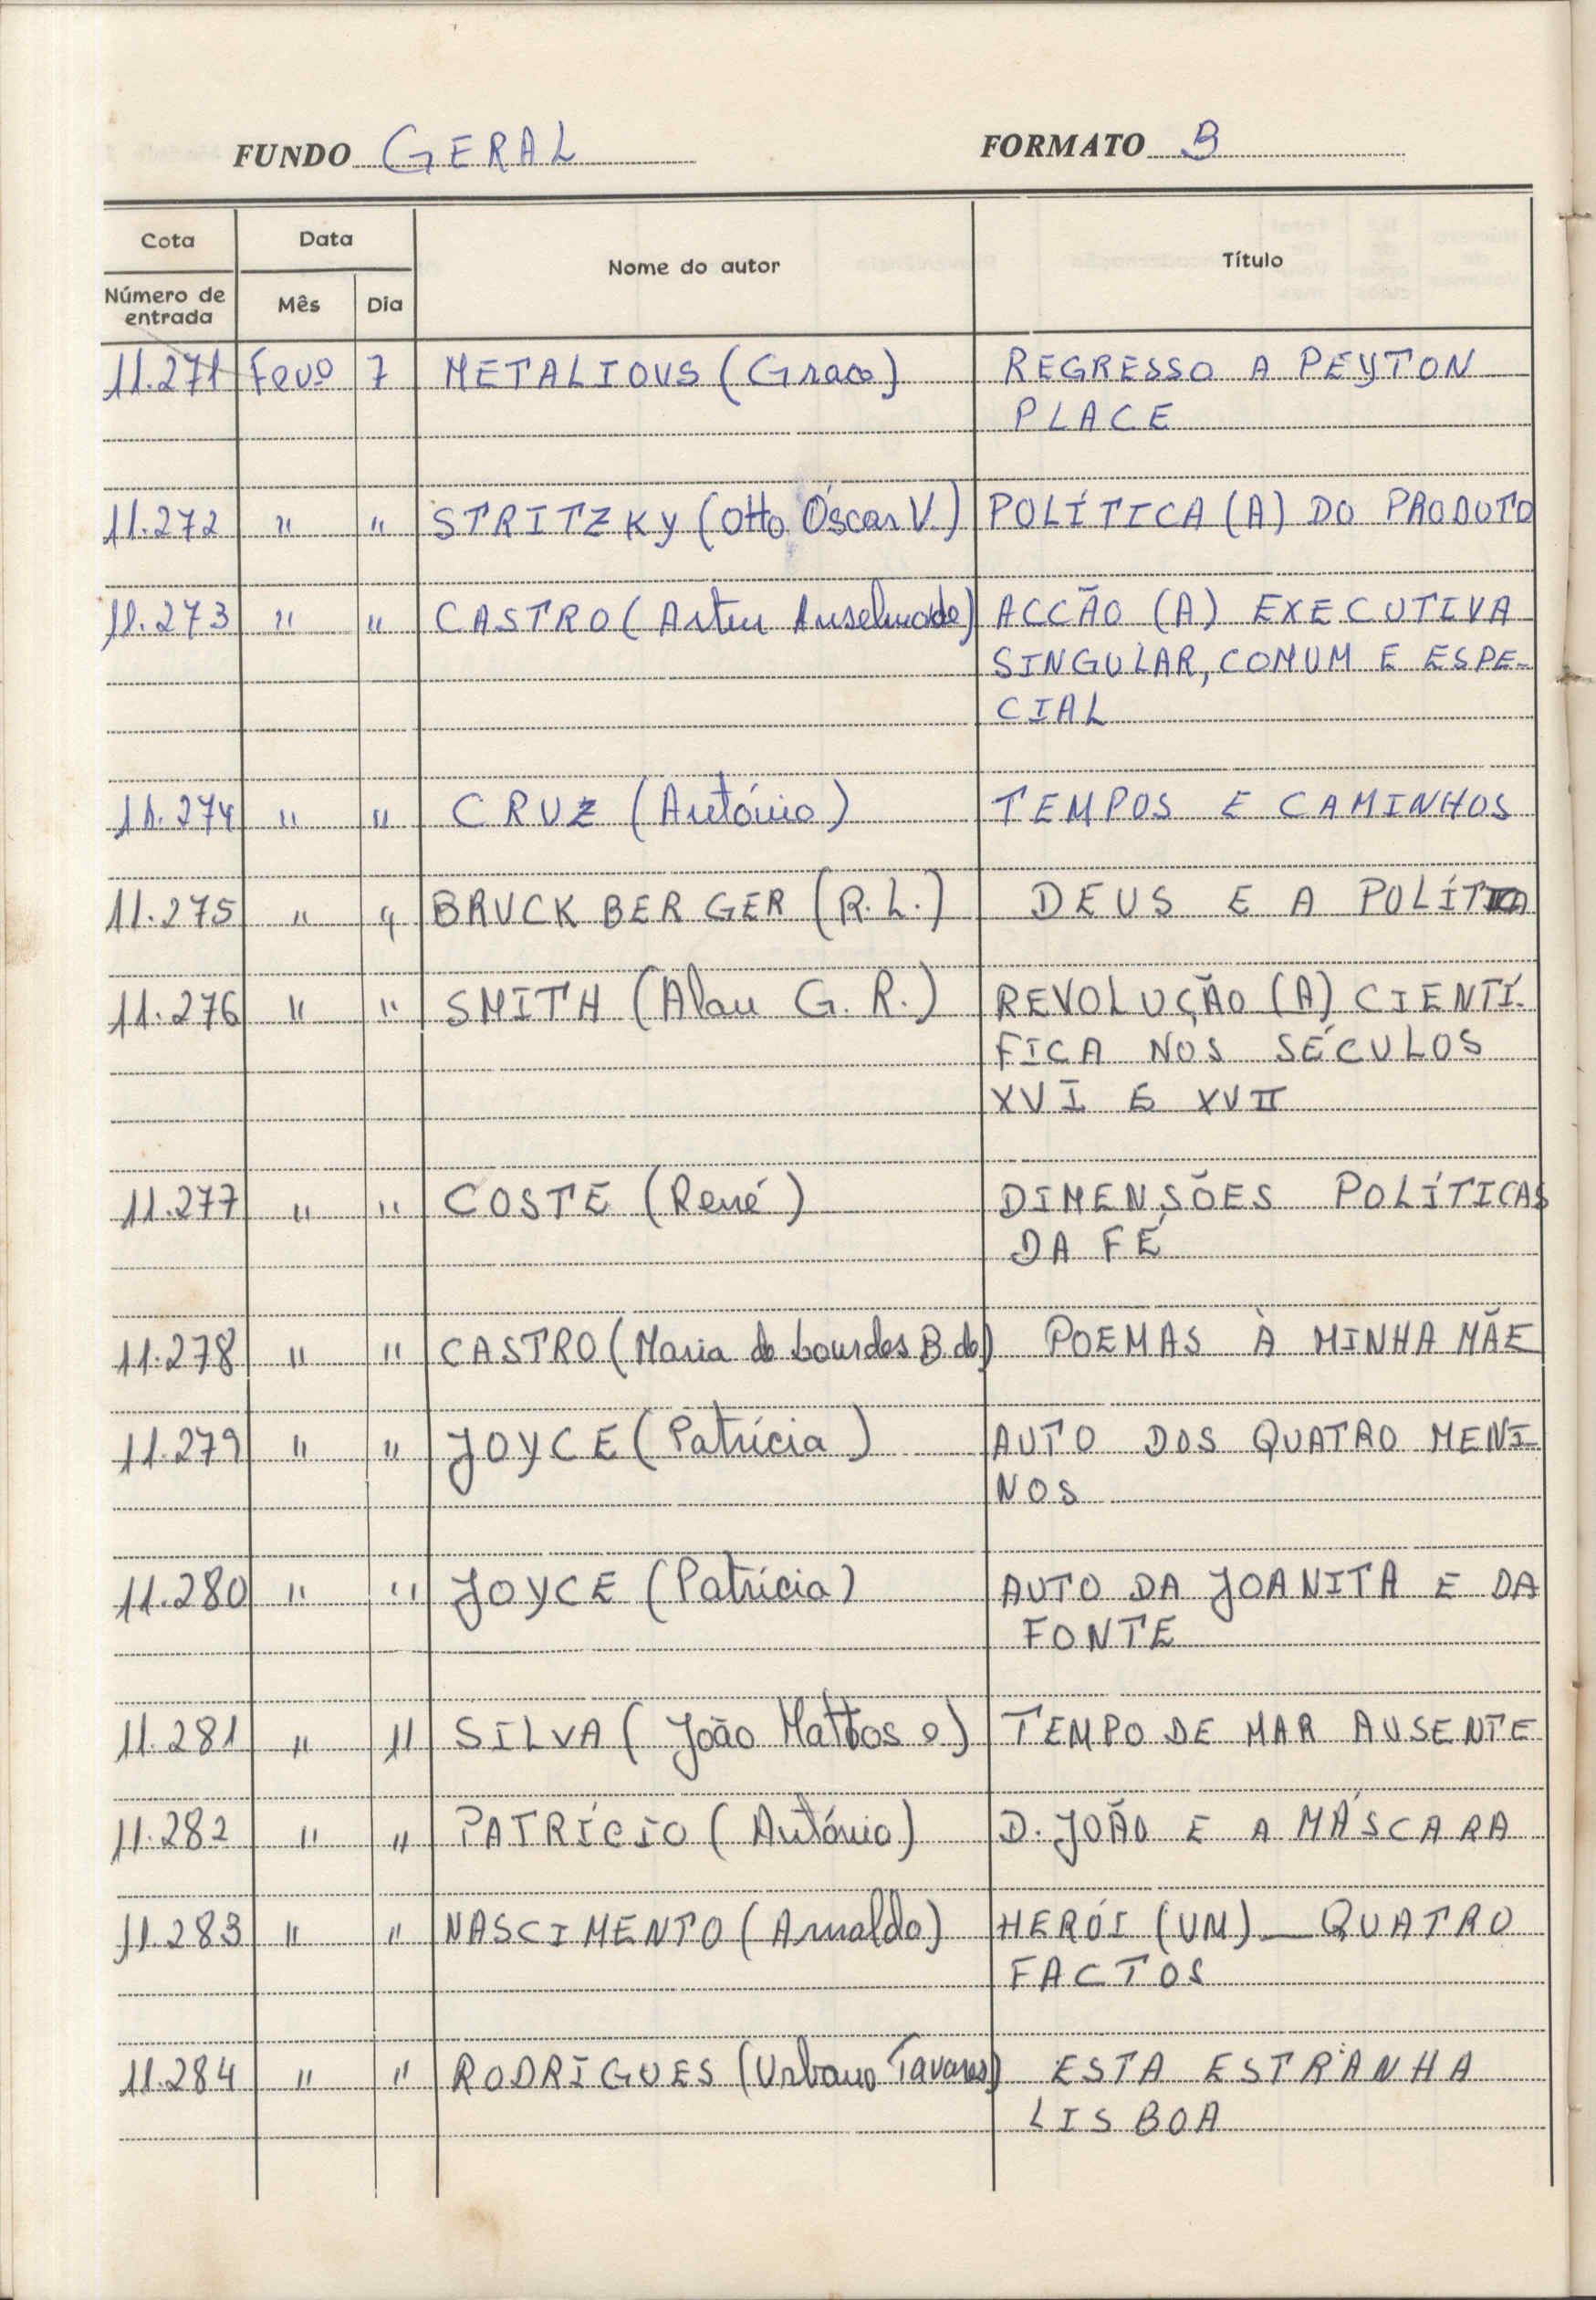 FUNDO GERAL FORMATO B
Cota Data Nome do autor Título
Número de entrada Mês Dia
11.271 Fevº 7 METALIOUS (Grace) REGRESSO A PEYTON
PLACE
11.272 " " STRITZKY (Otto Óscar V.) POLÍTICA (A) DO PRODUTO
11.273 " " CASTRO (Artur Anselmo de) ACCÃO (A) EXECUTIVA
SINGULAR, COMUM E ESPE-
CIAL
11.274 " " CRUZ (António) TEMPOS E CAMINHOS
11.275 " " BRUCKBERGER (R.L.) DEUS E A POLÍTICA
11.276 " " SMITH (Alan G. R.) REVOLUÇÃO (A) CIENTÍ-
FICA NOS SÉCULOS
XVI E XVII
11.277 " " COSTE (René) DIMENSÕES POLÍTICAS
DA FÉ
11.278 " " CASTRO (Maria de Lourdes B. de) POEMAS À MINHA MÃE
11.279 " " JOYCE (Patrícia) AUTO DOS QUATRO MENI-
NOS
11.280 " " JOYCE (Patrícia) AUTO DA JOANITA E DA
FONTE
11.281 " " SILVA (João Mattos e) TEMPO DE MAR AUSENTE
11.282 " " PATRÍCIO (António) D. JOÃO E A MÁSCARA
11.283 " " NASCIMENTO (Arnaldo) HERÓI (UM) — QUATRO
FACTOS
11.284 " " RODRIGUES (Urbano Tavares) ESTA ESTRANHA
LISBOA